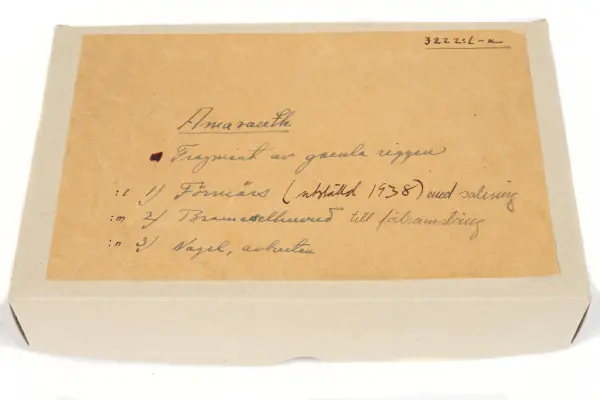 3222:l-n
Amaranth
Fragment av gamla riggen
:l 1) Förmärs (utställd 1938) med salning
:m 2) Brameselhuvud till förbramstång
:n 3) Nagel, avbruten